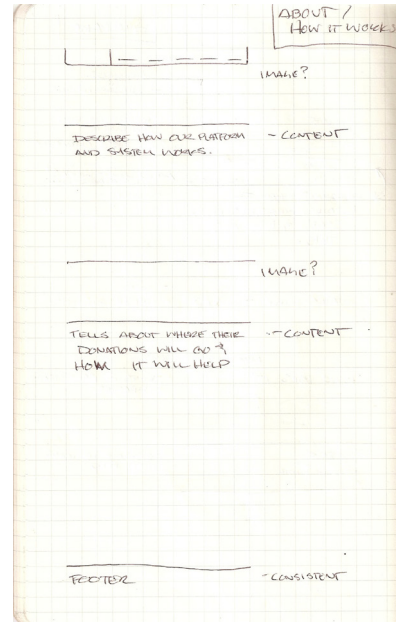 ABOUT /
HOW IT WORKS
IMAGE?
DESCRIBE HOW OUR PLATFORM
AND SYSTEM WORKS.
- CONTENT
IMAGE?
TELLS ABOUT WHERE THEIR
DONATIONS WILL GO &
HOW IT WILL HELP
- CONTENT
FOOTER
- CONSISTENT